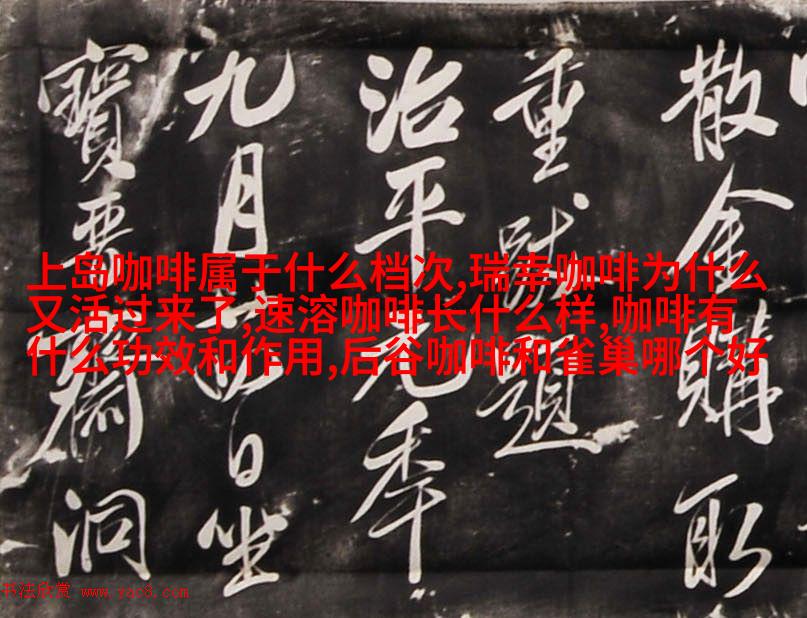 上岛咖啡属于什么档次,瑞幸咖啡为什么
又活过来了,速溶咖啡长什么样,咖啡有
什么功效和作用,后谷咖啡和雀巢哪个好
散金購取
重跋題
治平元秊
九月日坐
寶晉齋洞
书法欣赏 www.yac8.com